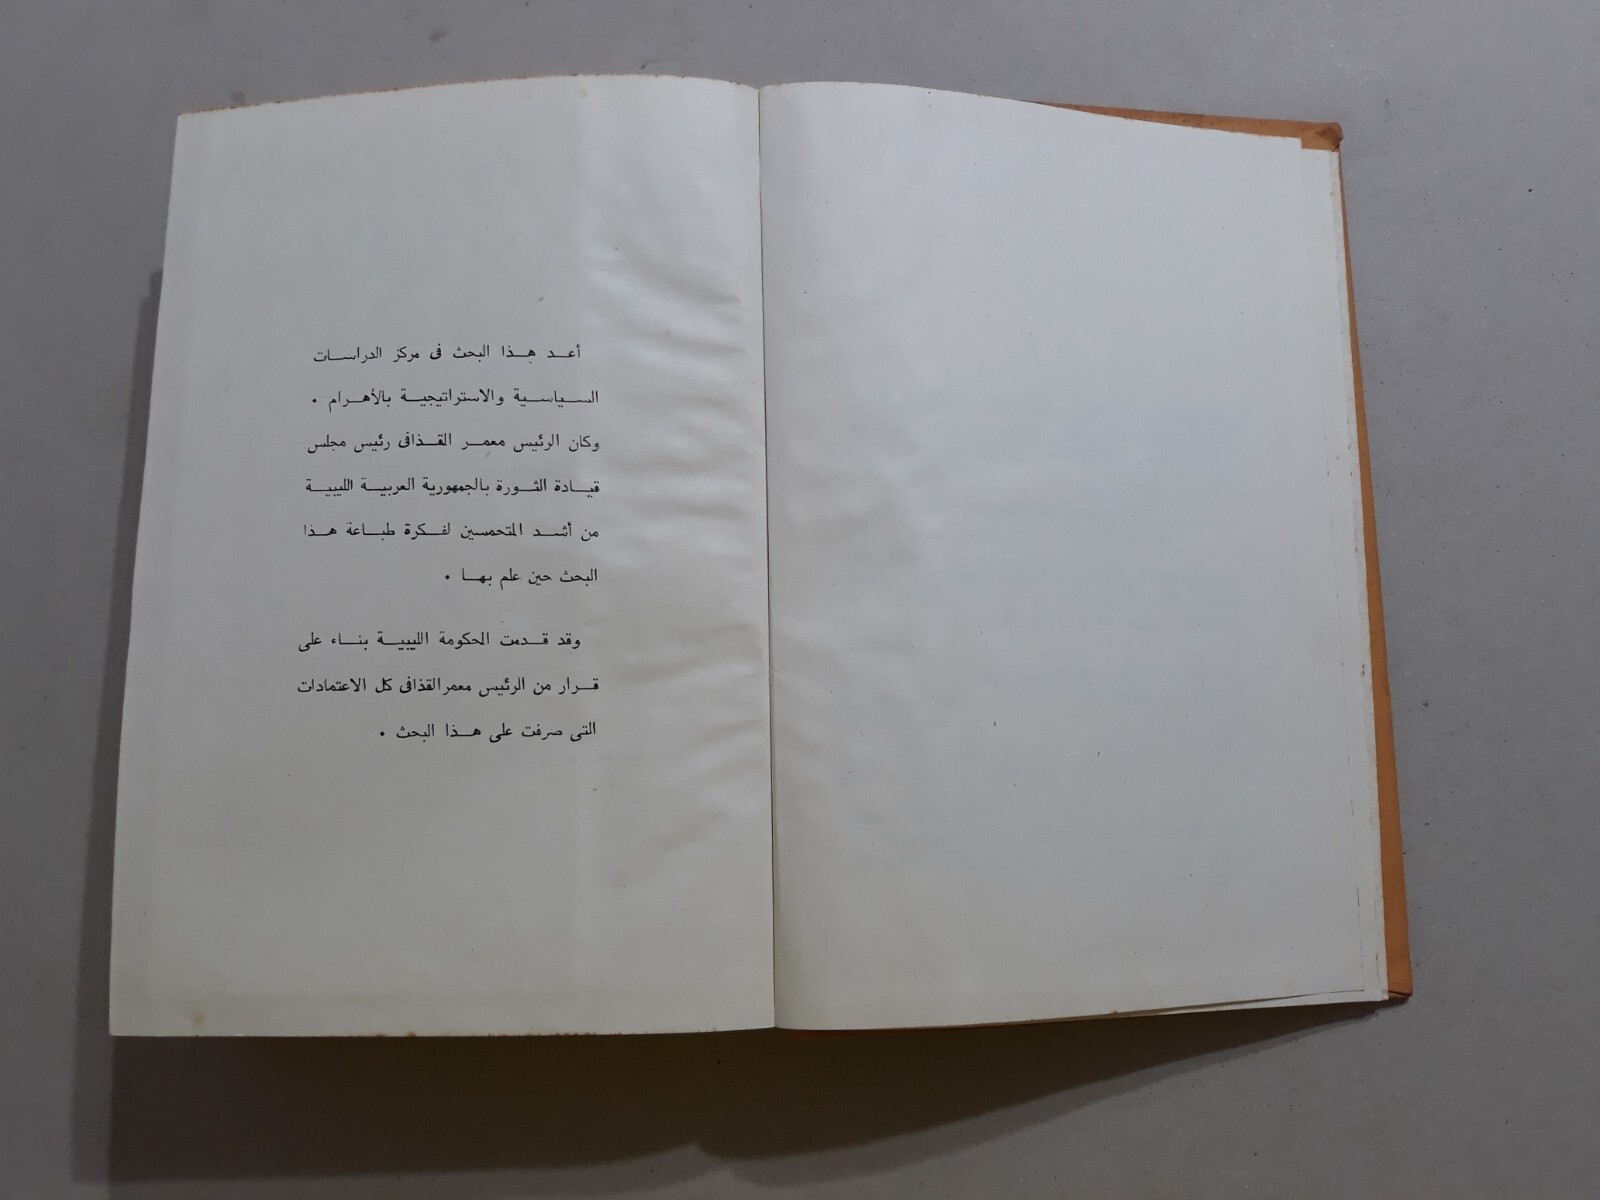 أعد هذا البحث فى مركز الدراسات
السياسية والاستراتيجية بالأهرام .
وكان الرئيس معمر القذافى رئيس مجلس
قيادة الثورة بالجمهورية العربية الليبية
من أشد المتحمسين لفكرة طباعة هذا
البحث حين علم بها .
وقد قدمت الحكومة الليبية بناء على
قرار من الرئيس معمر القذافى كل الاعتمادات
التى صرفت على هذا البحث .